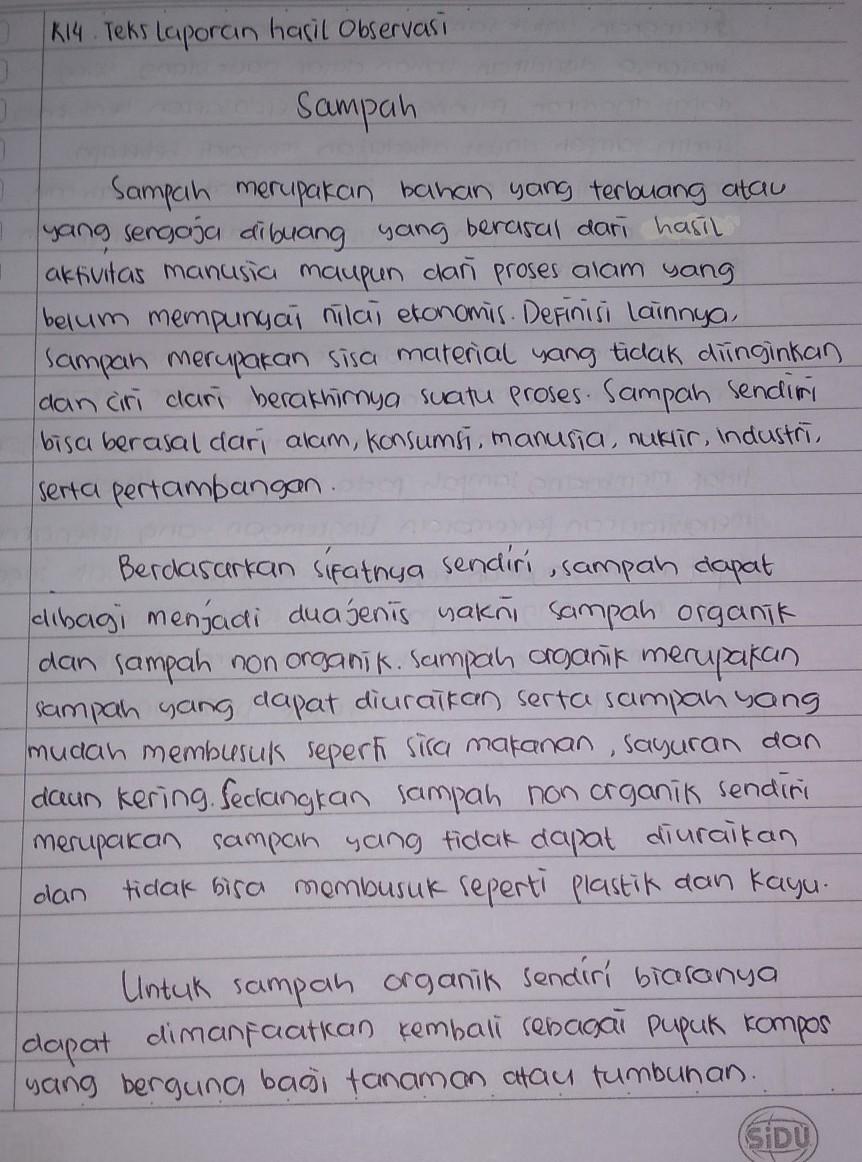 K14. Teks laporan hasil Observasi
Sampah
Sampah merupakan bahan yang terbuang atau
yang sengaja dibuang yang berasal dari hasil
aktivitas manusia maupun dari proses alam yang
belum mempunyai nilai ekonomis. Definisi lainnya,
sampah merupakan sisa material yang tidak diinginkan
dan ciri dari berakhirnya suatu proses. Sampah sendiri
bisa berasal dari alam, konsumsi, manusia, nuklir, industri,
serta pertambangan.
Berdasarkan sifatnya sendiri, sampah dapat
dibagi menjadi dua jenis yakni sampah organik
dan sampah non organik. Sampah organik merupakan
sampah yang dapat diuraikan serta sampah yang
mudah membusuk seperti sisa makanan, sayuran dan
daun kering. Sedangkan sampah non organik sendiri
merupakan sampah yang tidak dapat diuraikan
dan tidak bisa membusuk seperti plastik dan kayu.
Untuk sampah organik sendiri biasanya
dapat dimanfaatkan kembali sebagai pupuk kompos
yang berguna bagi tanaman atau tumbuhan.
SiDU